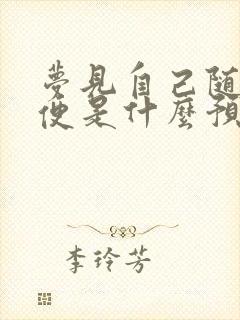 夢見自己随
便是什麼預
李玲芳